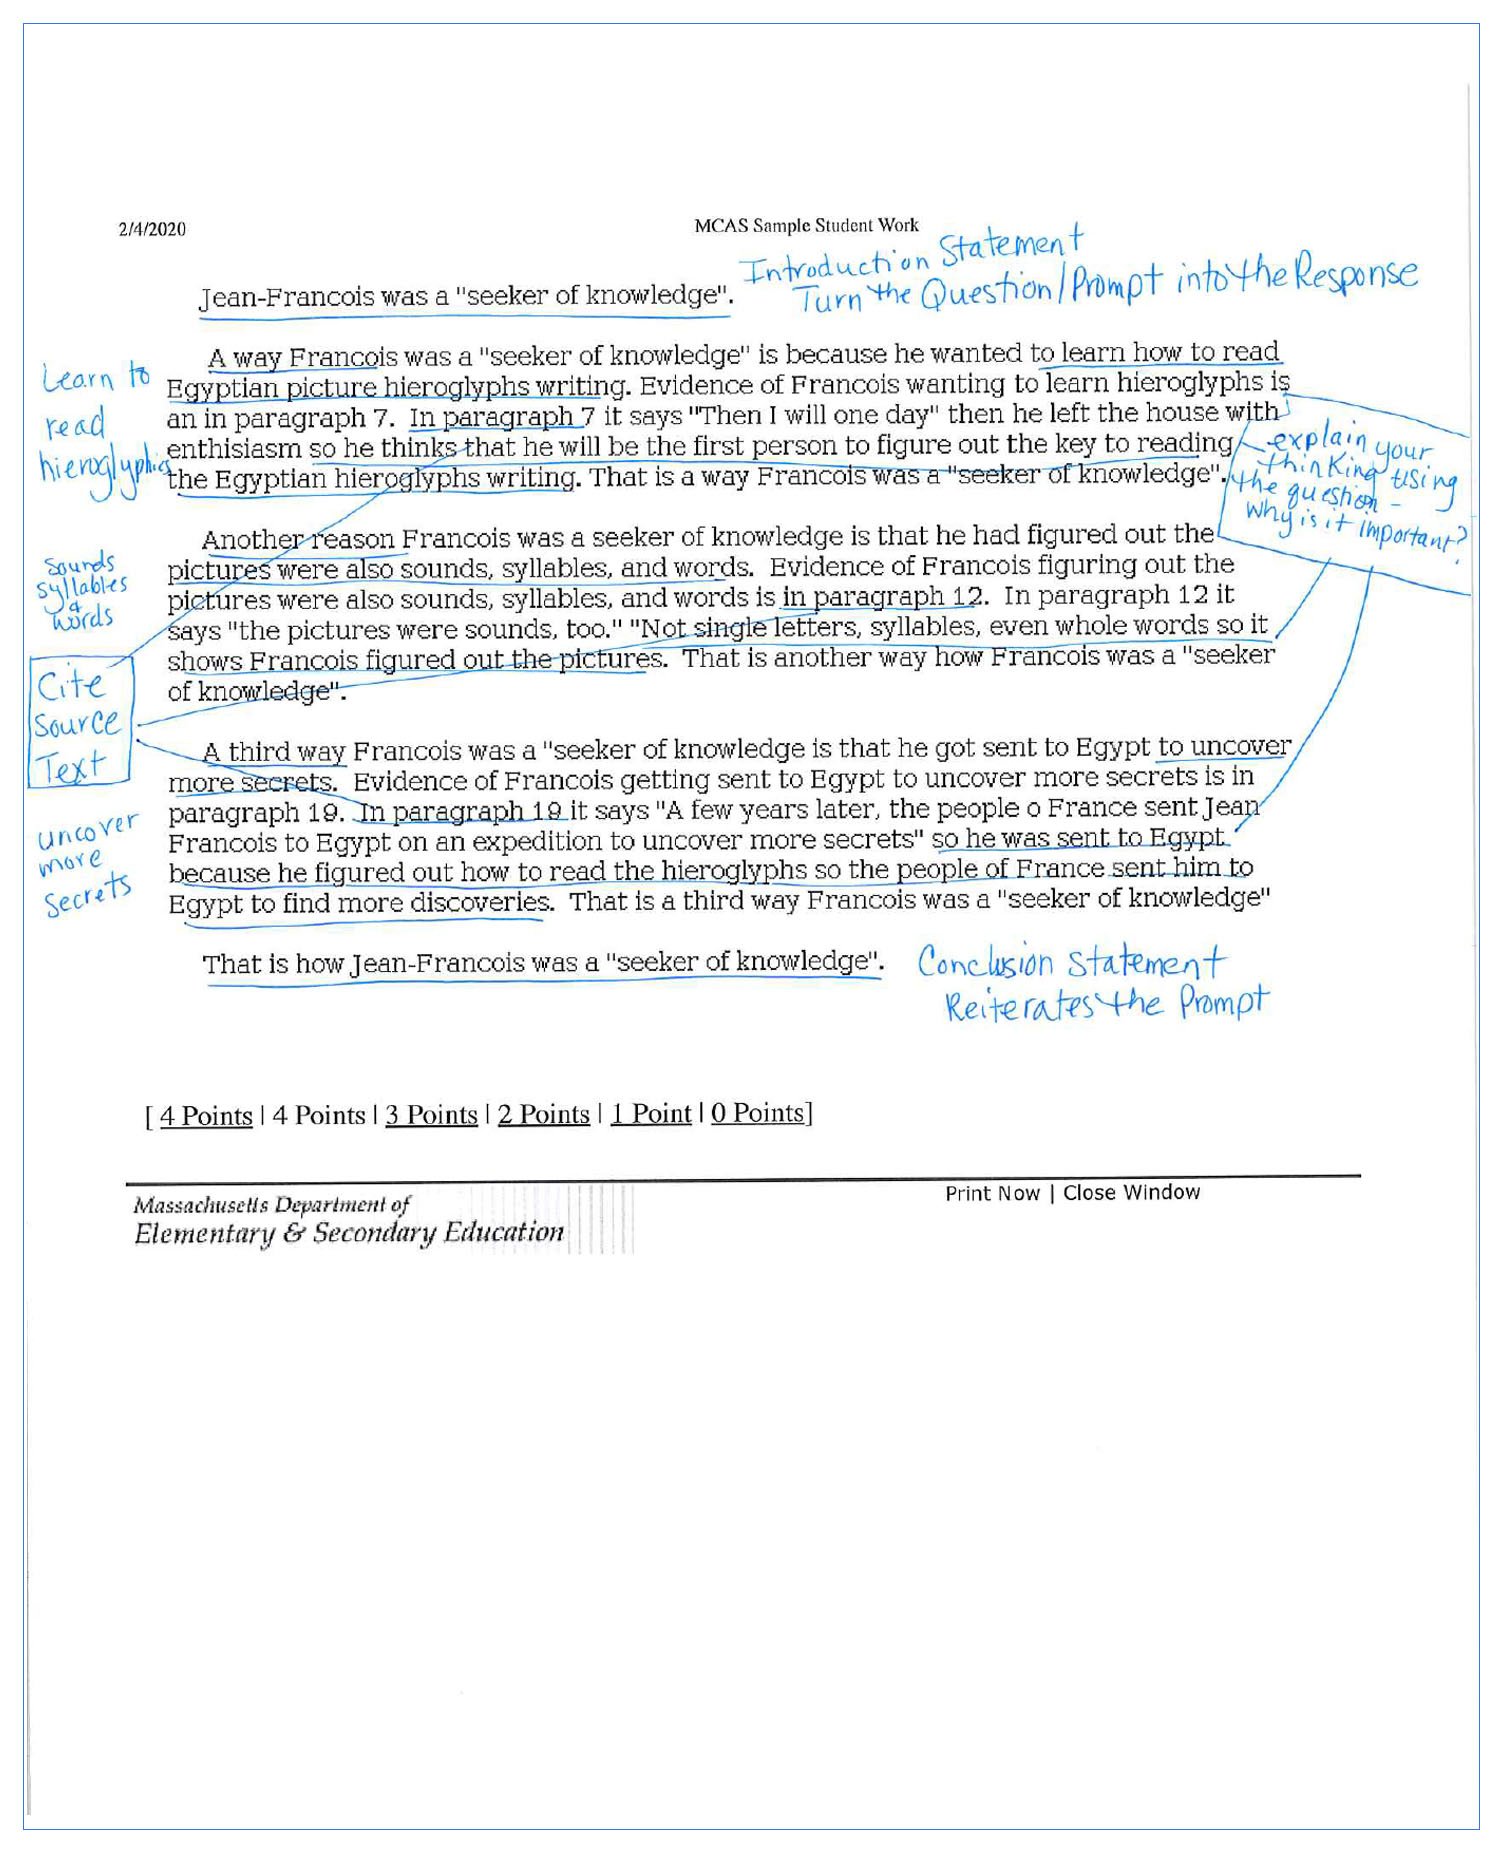 2/4/2020
MCAS Sample Student Work
Introduction Statement
Turn the Question/Prompt into the Response
Jean-Francois was a "seeker of knowledge".
A way Francois was a "seeker of knowledge" is because he wanted to learn how to read
Egyptian picture hieroglyphs writing. Evidence of Francois wanting to learn hieroglyphs is
an in paragraph 7. In paragraph 7 it says "Then I will one day" then he left the house with
enthisiasm so he thinks that he will be the first person to figure out the key to reading
the Egyptian hieroglyphs writing. That is a way Francois was a "seeker of knowledge".
Learn to
read
hieroglyphics
explain your
thinking using
the question -
why is it important?
Another reason Francois was a seeker of knowledge is that he had figured out the
pictures were also sounds, syllables, and words. Evidence of Francois figuring out the
pictures were also sounds, syllables, and words is in paragraph 12. In paragraph 12 it
says "the pictures were sounds, too." "Not single letters, syllables, even whole words so it
shows Francois figured out the pictures. That is another way how Francois was a "seeker
of knowledge".
Sounds
syllables
+
words
Cite
Source
Text
A third way Francois was a "seeker of knowledge is that he got sent to Egypt to uncover
more secrets. Evidence of Francois getting sent to Egypt to uncover more secrets is in
paragraph 19. In paragraph 19 it says "A few years later, the people o France sent Jean
Francois to Egypt on an expedition to uncover more secrets" so he was sent to Egypt
because he figured out how to read the hieroglyphs so the people of France sent him to
Egypt to find more discoveries. That is a third way Francois was a "seeker of knowledge"
uncover
more
secrets
That is how Jean-Francois was a "seeker of knowledge".
Conclusion Statement
Reiterates the Prompt
[ 4 Points | 4 Points | 3 Points | 2 Points | 1 Point | 0 Points]
Massachusetts Department of
Elementary & Secondary Education
Print Now | Close Window